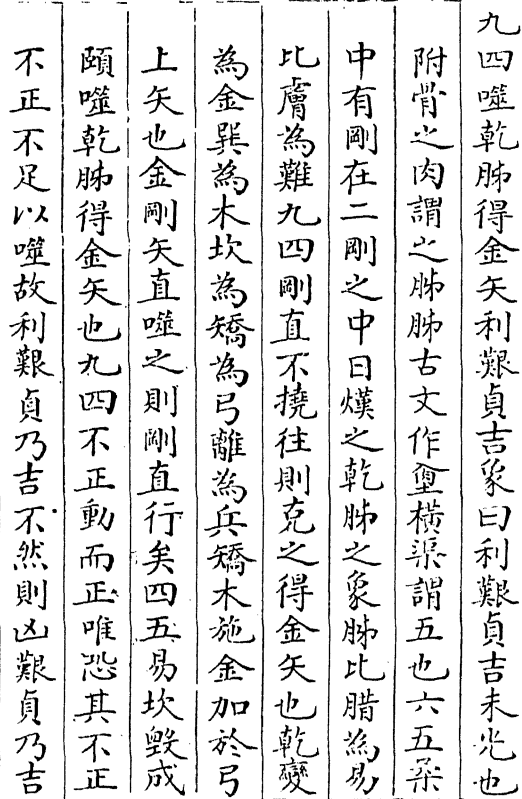 九四噬乾胏得金矢利艱貞吉象曰利艱貞吉未光也
附骨之肉謂之胏胏古文作𦚨橫渠謂五也六五柔
中有剛在二剛之中日熯之乾胏之象胏比腊為易
比膚為難九四剛直不撓往則克之得金矢也乾變
為金巽為木坎為矯為弓離為兵矯木施金加於弓
上矢也金剛矢直噬之則剛直行矣四五易坎毀成
頤噬乾胏得金矢也九四不正動而正唯恐其不正
不正不足以噬故利艱貞乃吉不然則凶艱貞乃吉